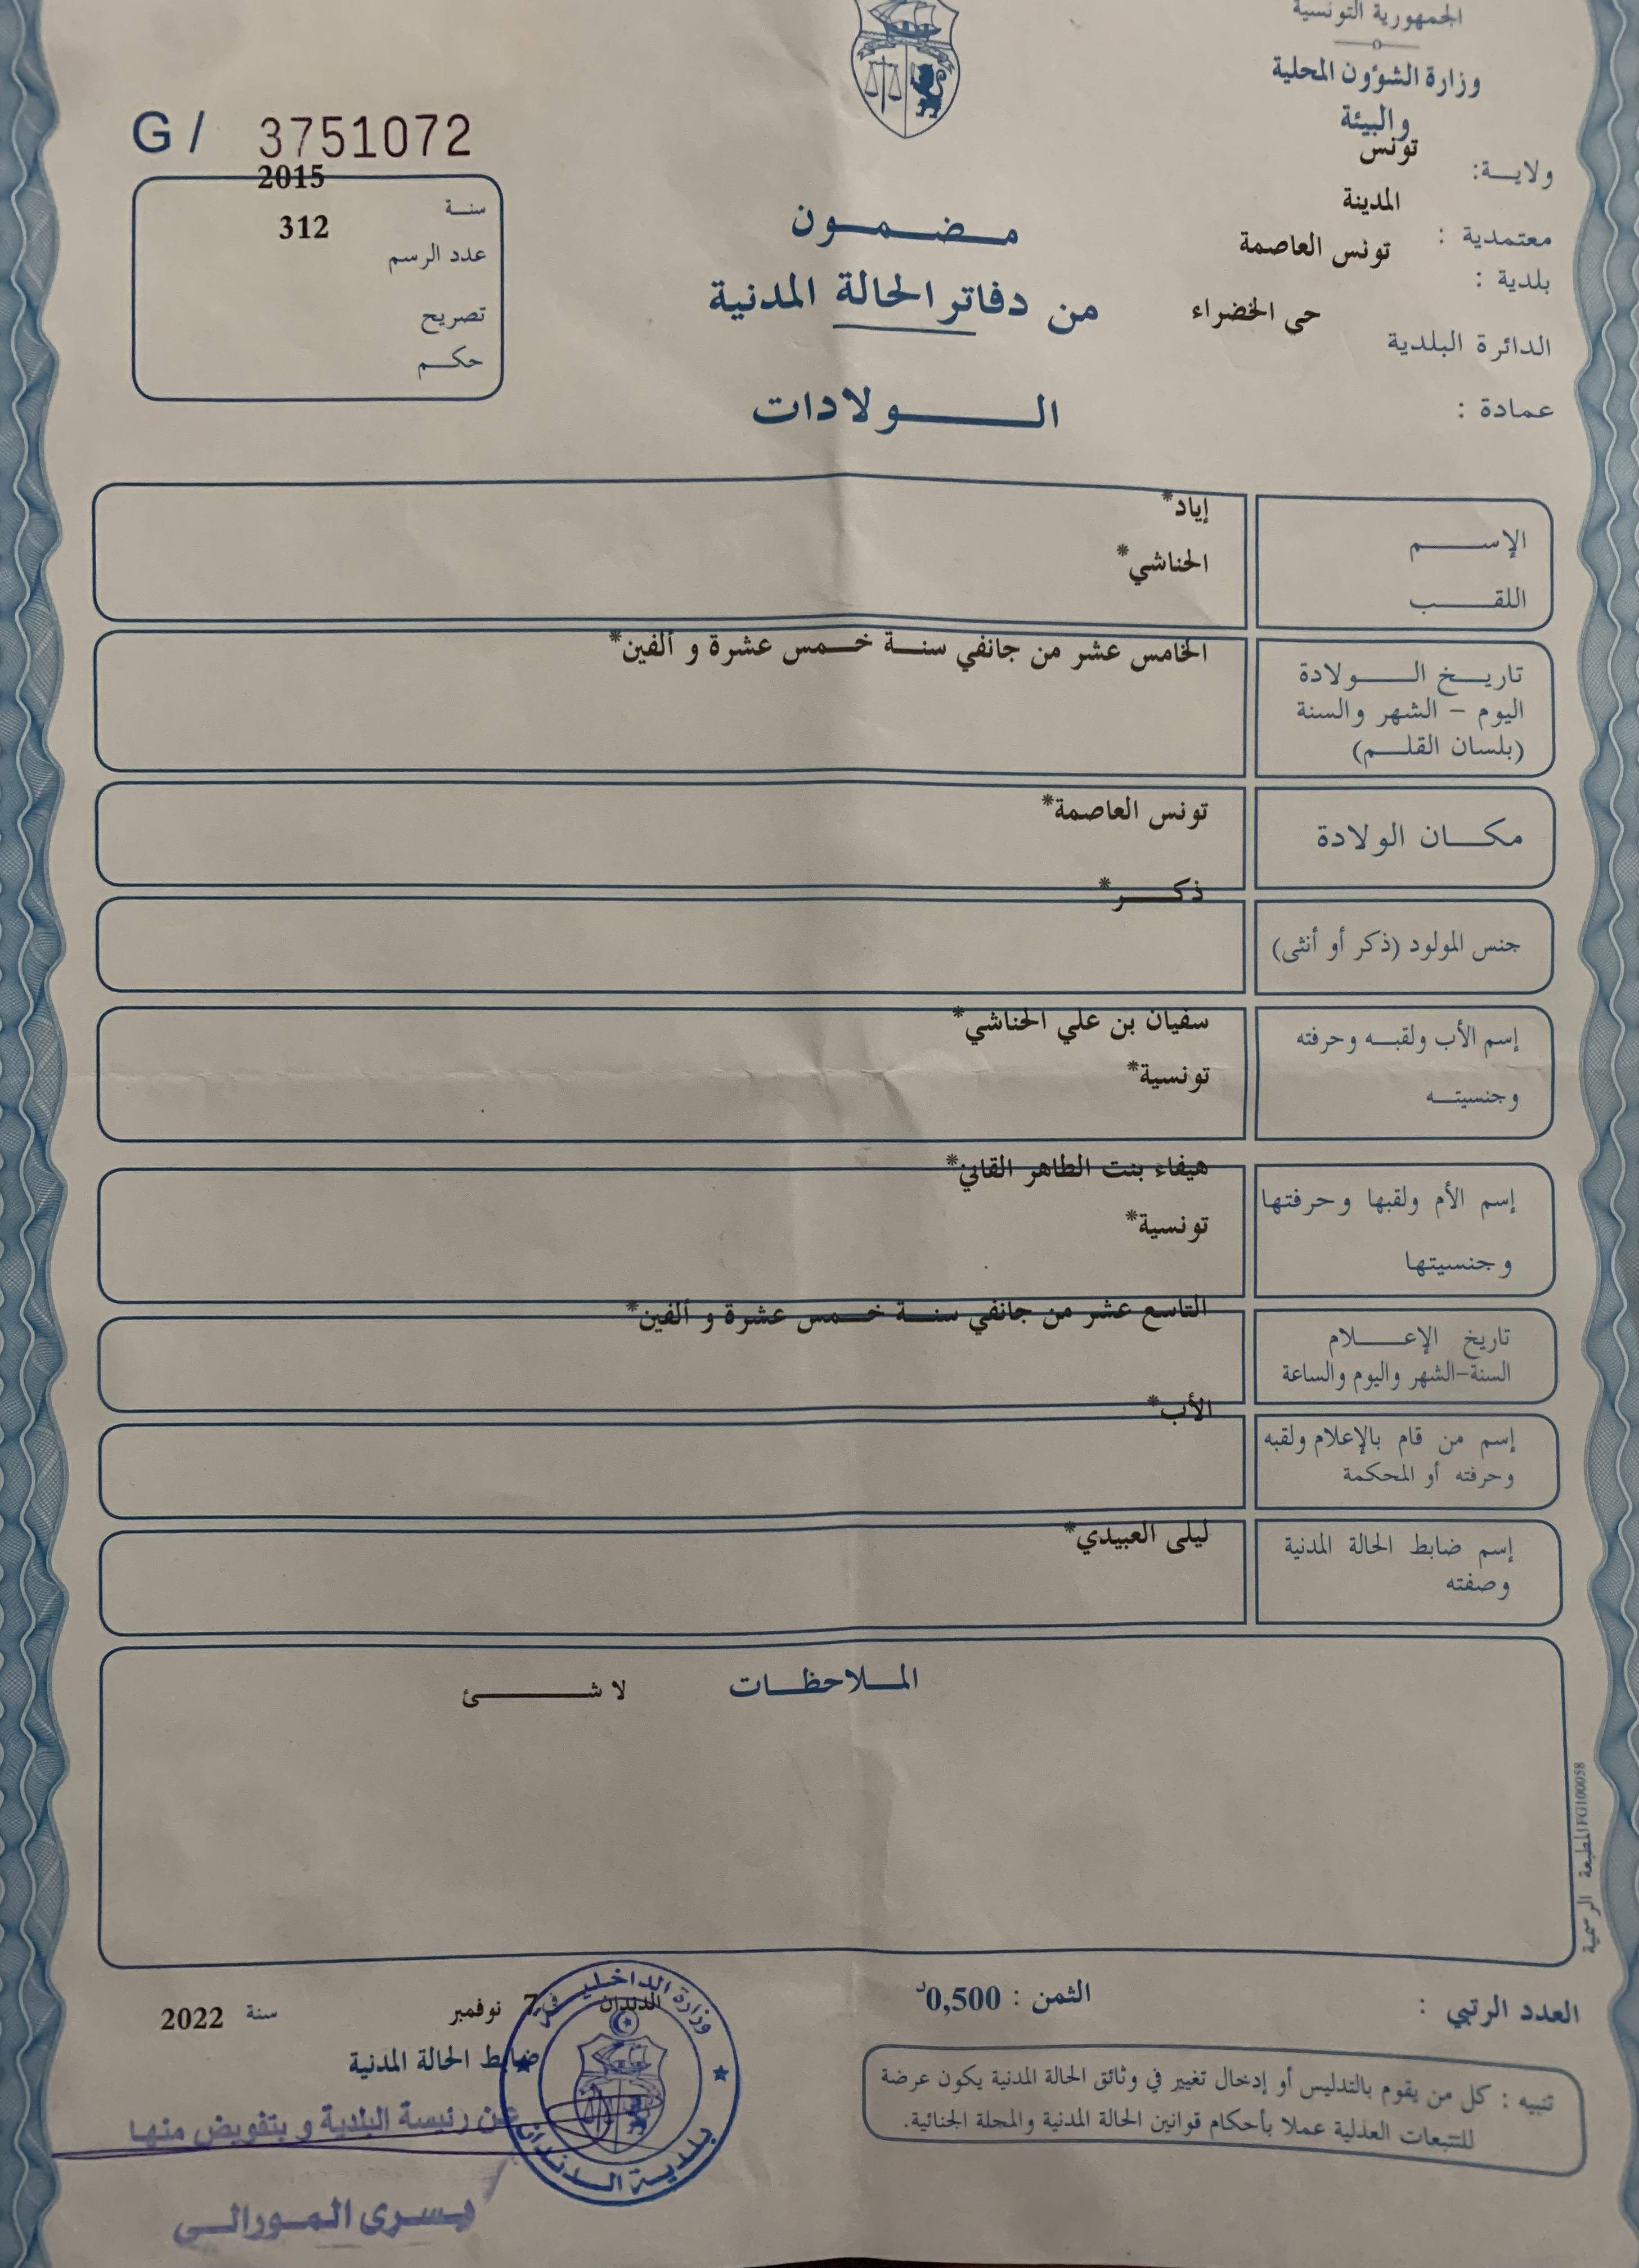 الجمهورية التونسية
وزارة الشؤون المحلية
والبيئة
ولاية: تونس
معتمدية : المدينة
بلدية : تونس العاصمة
الدائرة البلدية حي الخضراء
عمادة :
G / 3751072
سنة 2015
عدد الرسم 312
تصريح
حكم
مضمون
من دفاتر الحالة المدنية
الولادات
الإسم إياد*
اللقب الحناشي*
تاريخ الولادة الخامس عشر من جانفي سنة خمس عشرة و ألفين*
اليوم - الشهر والسنة
(بلسان القلم)
مكان الولادة تونس العاصمة*
جنس المولود (ذكر أو أنثى) ذكر*
إسم الأب ولقبه وحرفته سفيان بن علي الحناشي*
وجنسيته تونسية*
إسم الأم ولقبها وحرفتها هيفاء بنت الطاهر القاني*
وجنسيتها تونسية*
تاريخ الإعلام التاسع عشر من جانفي سنة خمس عشرة و ألفين*
السنة-الشهر واليوم والساعة
إسم من قام بالإعلام ولقبه الأب*
وحرفته أو المحكمة
إسم ضابط الحالة المدنية ليلى العبيدي*
وصفته
الملاحظات لا شئ
المطبعة الرسمية FG100058
العدد الرتبي :
الثمن : 0,500د
الدندان في 7 نوفمبر سنة 2022
ضابط الحالة المدنية
تنبيه : كل من يقوم بالتدليس أو إدخال تغيير في وثائق الحالة المدنية يكون عرضة
للتتبعات العدلية عملا بأحكام قوانين الحالة المدنية والمجلة الجنائية.
وزارة الداخلية
بلدية الدندان
عن رئيسة البلدية و بتفويض منها
يسرى المورالي